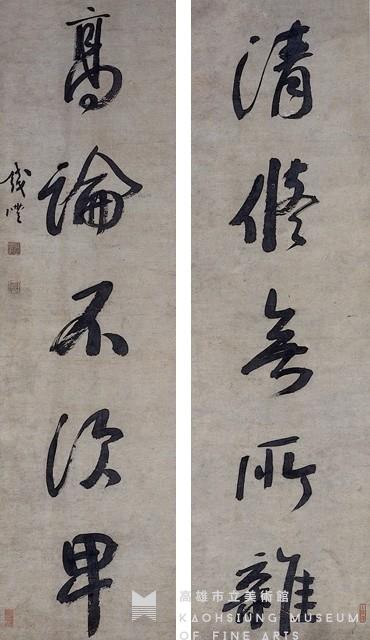 清脩無所雜
高論不須卑
錢灃
高雄市立美術館
KAOHSIUNG MUSEUM
OF FINE ARTS